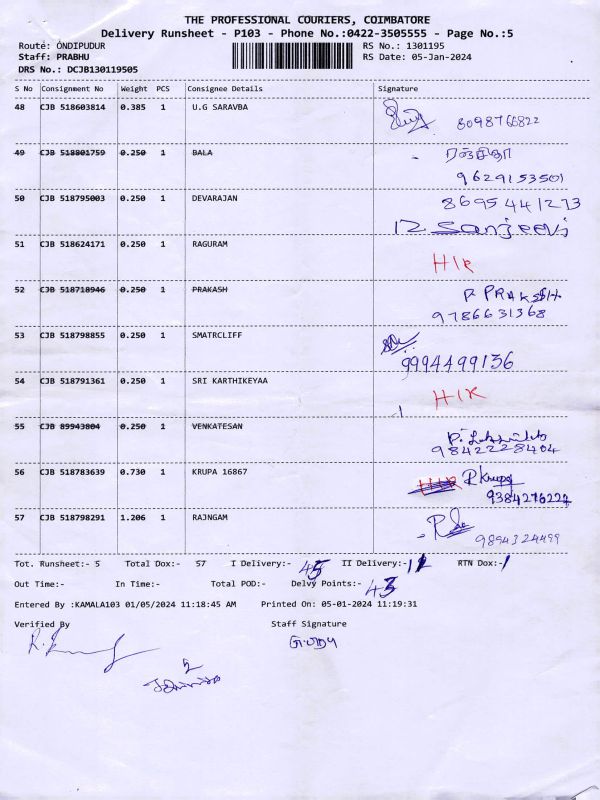 THE PROFESSIONAL COURIERS, COIMBATORE
Delivery Runsheet - P103 - Phone No.:0422-3505555 - Page No.:5
Route: ONDIPUDUR RS No.: 1301195
Staff: PRABHU RS Date: 05-Jan-2024
DRS No.: DCJB130119505
S No Consignment No Weight PCS Consignee Details Signature
48 CJB 518603814 0.385 1 U.G SARAVBA
8098766822
49 CJB 518801759 0.250 1 BALA
9629153501
50 CJB 518795003 0.250 1 DEVARAJAN 8695441273
Sanjeevi
51 CJB 518624171 0.250 1 RAGURAM
HIR
52 CJB 518718946 0.250 1 PRAKASH P. PRAKASH
9786631368
53 CJB 518798855 0.250 1 SMATRCLIFF
9994499136
54 CJB 518791361 0.250 1 SRI KARTHIKEYAA
HIR
55 CJB 89943804 0.250 1 VENKATESAN
9842228404
56 CJB 518783639 0.730 1 KRUPA 16867 P Krupa
57 CJB 518798291 1.206 1 RAJNGAM
9894324499
Tot. Runsheet:- 5 Total Dox:- 57 I Delivery:- 45 II Delivery:- RTN Dox:-1
Out Time:- In Time:- Total POD:- Delvy Points:- 43
Entered By :KAMALA103 01/05/2024 11:18:45 AM Printed On: 05-01-2024 11:19:31
Verified By Staff Signature